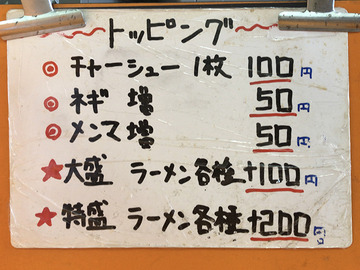 トッピング
◎ チャーシュー 1枚 100円
◎ ネギ 増 50円
◎ メンマ 増 50円
★ 大盛 ラーメン各種 +100円
★ 特盛 ラーメン各種 +200円